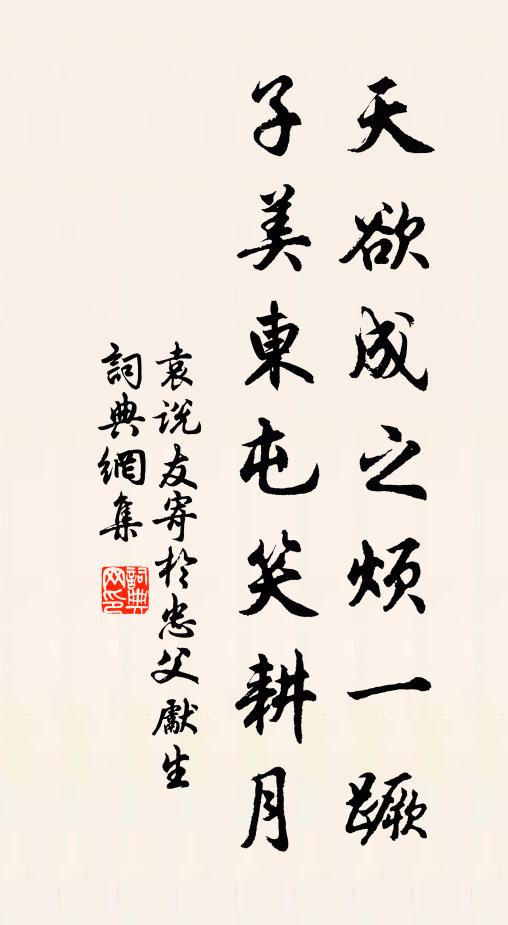 天欲成之煩一蹶
子美東屯笑耕月
袁説友寄於忠父獻生
詞典網集
詞典網印